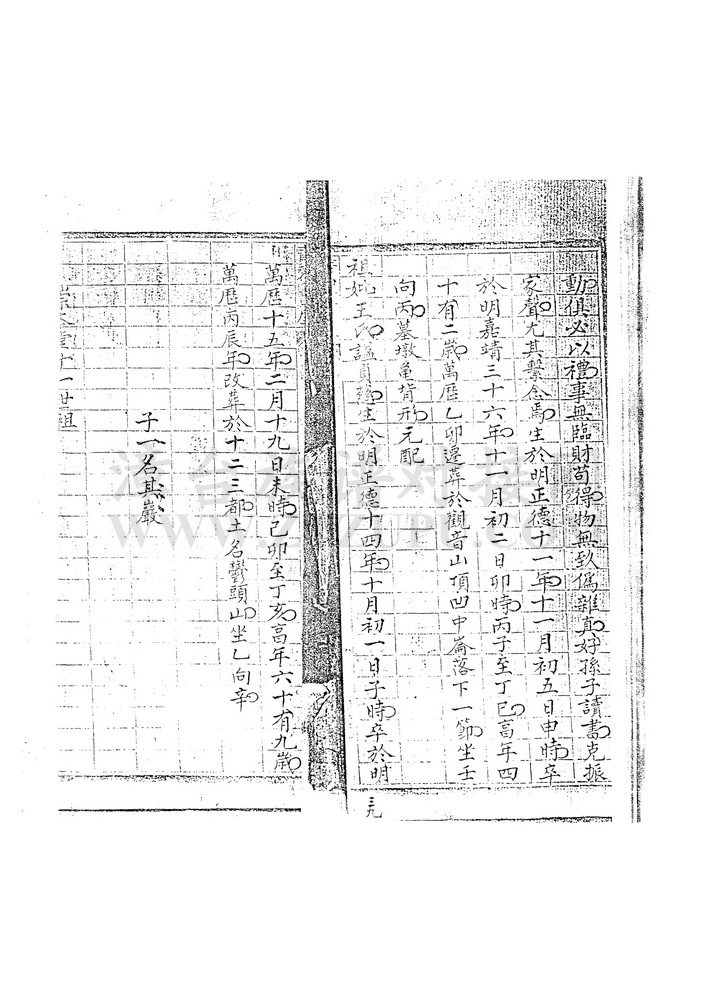 動俱必以禮事無臨財苟得物無致偽雜真好孫子讀書克振
家聲尤其繫念焉生於明正德十一年十一月初五日申時卒
於明嘉靖三十六年十一月初二日卯時丙子至丁巳高年四
十有二歲萬曆乙卯遷葬於觀音山頂凹中崙落下一節坐壬
向丙墓墩龜背形元配
祖妣王氏謚貞慈生於明正德十四年十月初一日子時卒於明
三九
萬曆十五年二月十九日未時己卯至丁亥高年六十有九歲
萬曆丙辰年改葬於十二三都土名鬱頭山坐乙向辛
子一名其巖
十一世祖
港台族谱对接
WWW.ZZZUPU.COM